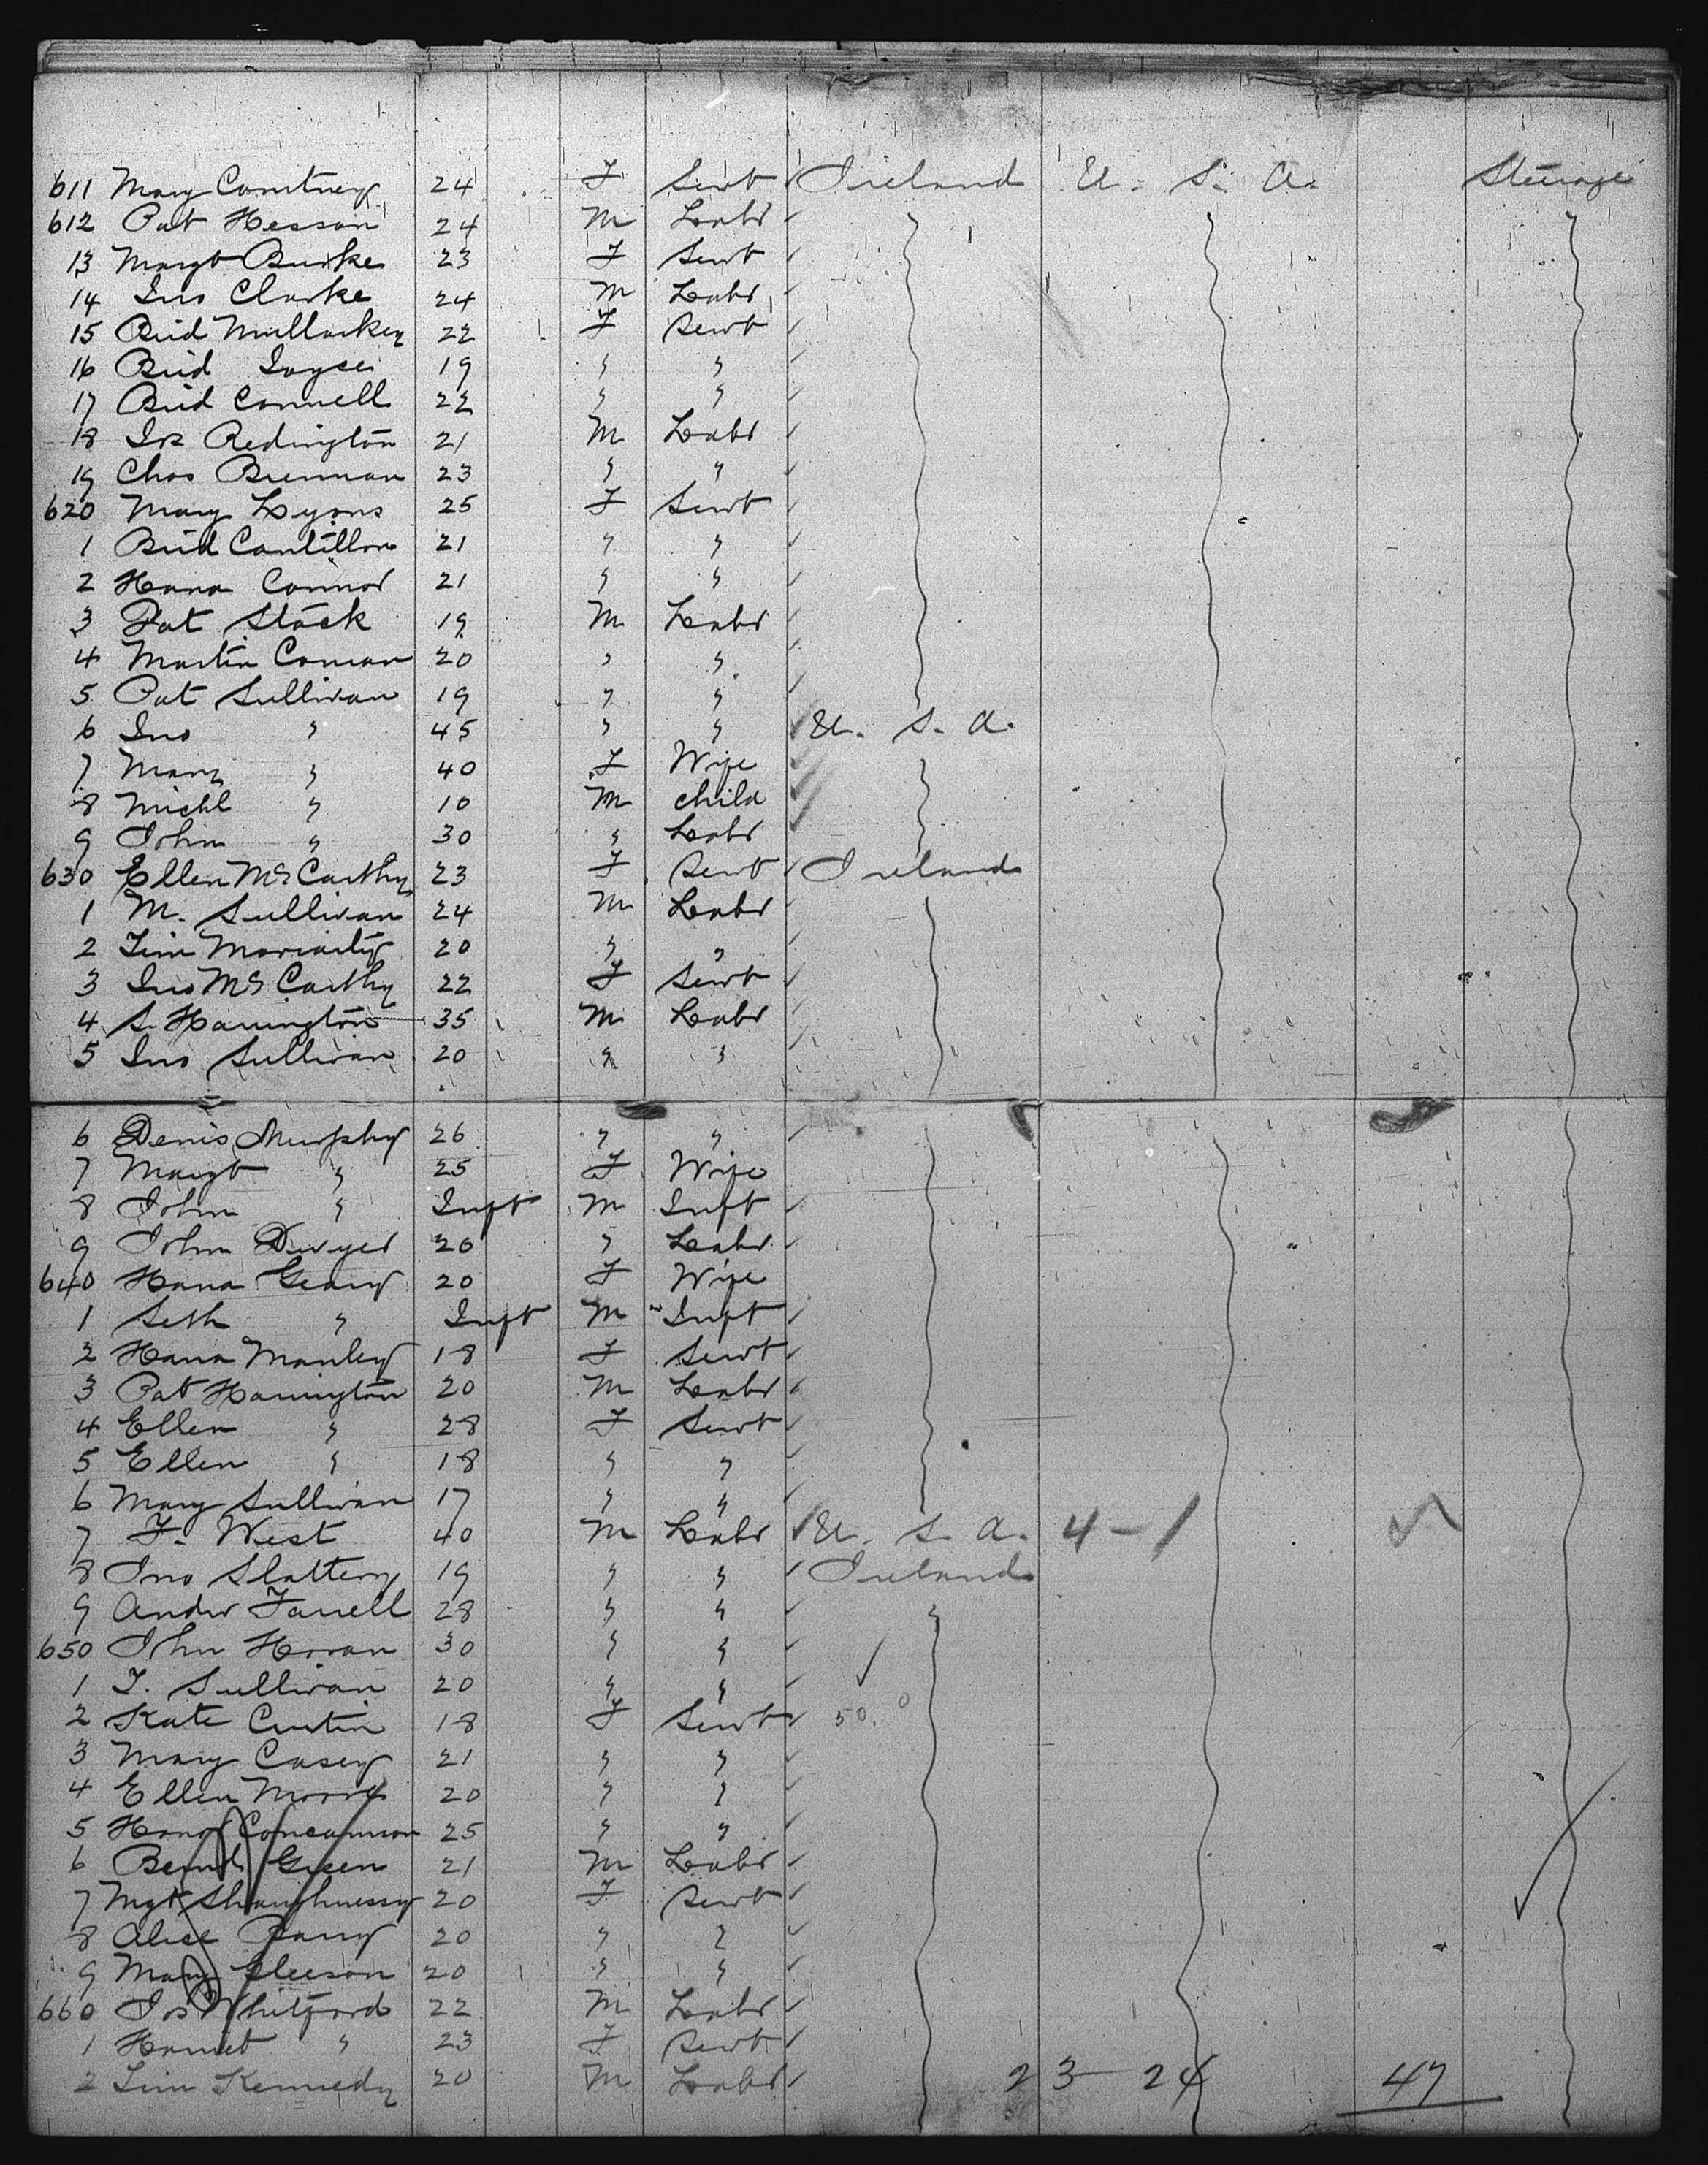 611 Mary Courtney 24 F Servt Ireland U. S. A. Steerage
612 Pat Hessan 24 M Labr
13 Margt Burke 23 F Servt
14 Jno Clarke 24 M Labr
15 Brid Mullarkey 22 F Servt
16 Brid Joyce 19 " "
17 Brid Connell 22 " "
18 Jos Redington 21 M Labr
19 Chas Brennan 23 " "
620 Mary Lyons 25 F Servt
1 Brid Cantillon 21 " "
2 Hana Connor 21 " "
3 Pat Stack 19 M Labr
4 Martin Conran 20 " "
5 Pat Sullivan 19 " "
6 Jno " 45 " " U. S. A.
7 Mary " 40 F Wife
8 Michl " 10 M child
9 John " 30 " Labr
630 Ellen McCarthy 23 F Servt Ireland
1 M. Sullivan 24 M Labr
2 Tim Moriarty 20 " "
3 Jno McCarthy 22 F Servt
4 S. Harrington 35 M Labr
5 Jno Sullivan 20 " "
6 Denis Murphy 26 " "
7 Margt " 25 F Wife
8 John " Inft M Inft
9 John Dwyer 26 " Labr
640 Hana Geary 20 F Wife
1 Seth " Inft M Inft
2 Hana Manley 18 F Servt
3 Pat Harrington 20 M Labr
4 Ellen " 28 F Servt
5 Ellen " 18 " "
6 Mary Sullivan 17 " "
7 F. West 40 M Labr U. S. A. 4-1
8 Jno Slattery 19 " " Ireland
9 Andw Farrell 28 " "
650 John Horan 30 " "
1 T. Sullivan 20 " "
2 Kate Curtin 18 F Servt 50.
3 Mary Casey 21 " "
4 Ellen Moore 20 " "
5 Honor Concannon 25 " "
6 Bernd Green 21 M Labr
7 Mgt Shaughnessy 20 F Servt
8 Alice Barry 20 " "
9 Mary Gleeson 20 " "
660 Jos Whitford 22 M Labr
1 Harriet " 23 F Servt
2 Tim Kennedy 20 M Labr 23 - 24 47